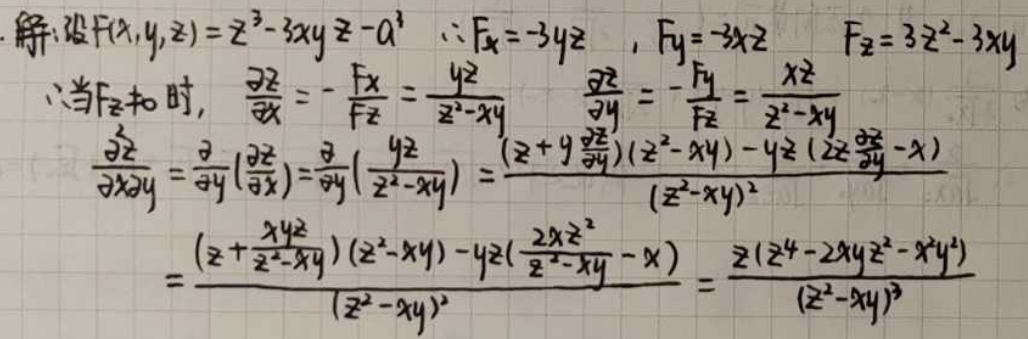 解:设F(x,y,z)=z³-3xyz-a³ ∴Fx=-3yz , Fy=-3xz Fz=3z²-3xy
∴当Fz≠0时, ∂z/∂x = -Fx/Fz = yz/(z²-xy) ∂z/∂y = -Fy/Fz = xz/(z²-xy)
∂²z/∂x∂y = ∂/∂y(∂z/∂x) = ∂/∂y(yz/(z²-xy)) = ((z+y∂z/∂y)(z²-xy)-yz(2z∂z/∂y-x))/(z²-xy)²
= ((z+xyz/(z²-xy))(z²-xy)-yz(2xz²/(z²-xy)-x))/(z²-xy)² = z(z⁴-2xyz²-x²y²)/(z²-xy)³